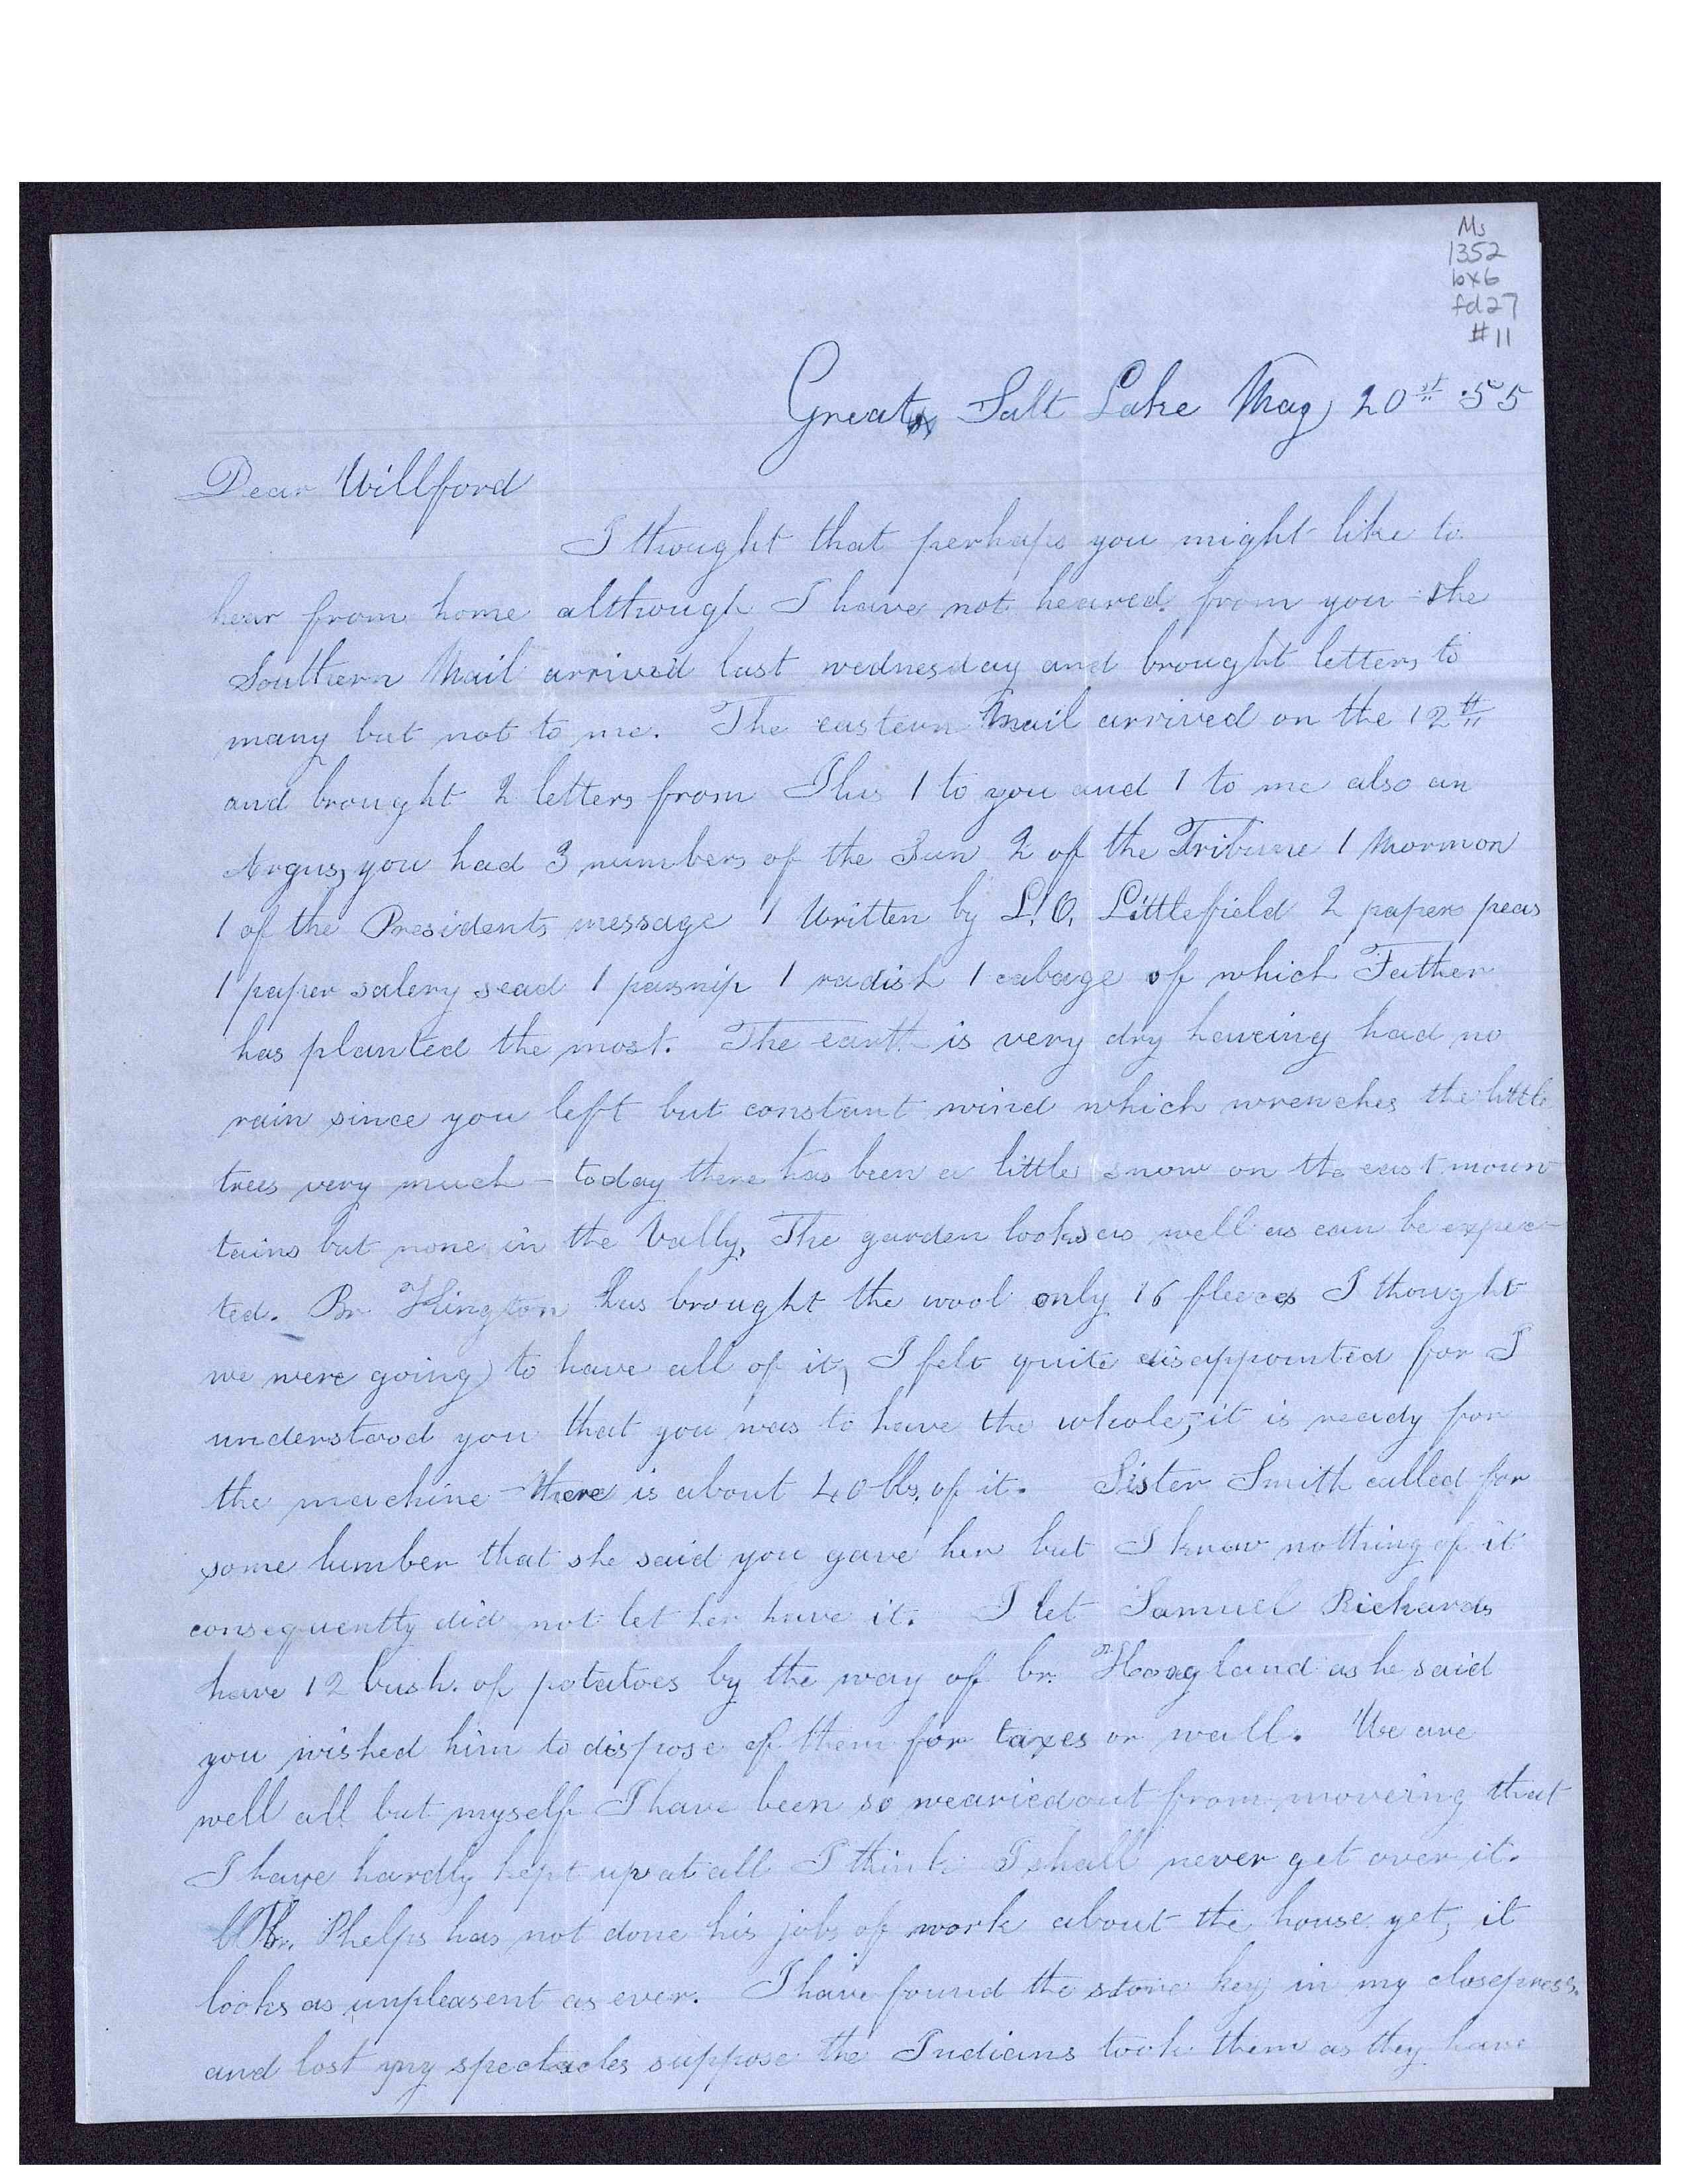 Ms
1352
bx6
fd27
#11
Great Salt Lake May 20th .55
Dear Willford
I thought that perhaps you might like to
hear from home although I have not heared from you the
Southern Mail arrived last wednesday and brought letters to
many but not to me. The eastern Mail arrived on the 12th
and brought 2 letters from Ilus 1 to you and 1 to me also an
Argus, you had 3 numbers of the Sun 2 of the Tribune 1 Mormon
1 of the Presidents message 1 Written by L. O. Littlefield 2 papers peas
1 paper salery sead 1 parsnip 1 radish 1 cabage of which Father
has planted the most. The earth is very dry haveing had no
rain since you left but constant wind which wrenches the little
trees very much - today there has been a little snow on the east moun
tains but none in the Vally, The garden looks as well as can be expec-
ted. Br. Hington has brought the wool only 16 fleeces I thought
we were going to have all of it, I felt quite disappointed for I
understood you that you was to have the whole, it is ready for
the machine there is about 40 lbs. of it. Sister Smith called for
some lumber that she said you gave her but I knew nothing of it
consequently did not let her have it. I let Samuel Richards
have 12 bush. of potatoes by the way of br. Hoagland as he said
you wished him to dispose of them for taxes or wall. We are
well all but myself I have been so wearied out from moveing that
I have hardly kept up at all I think I shall never get over it.
Br. Phelps has not done his jobs of work about the house yet, it
looks as unpleasent as ever. I have found the store key in my closepress.
and lost my spectacles suppose the Indians took them as they have